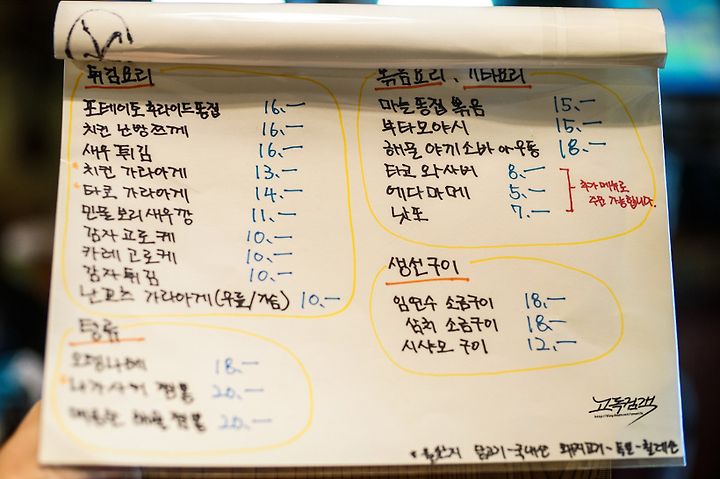 튀김요리
포테이토 후라이드 통집 16.—
치킨 난방즈께 16.—
새우 튀김 16.—
치킨 가라아게 13.—
타코 가라아게 14.—
민물 보리새우깡 11.—
감자 고로케 10.—
카레 고로케 10.—
감자 튀김 10.—
난꼬츠 가라아게 (무릎/가슴) 10.—
탕류
오뎅나베 18.—
나가사키 짬뽕 20.—
해물 짬뽕 20.—
볶음요리, 기타요리
마늘 통집 볶음 15.—
부타모야시 15.—
해물 야끼소바 아우동 18.—
타코 와사비 8.—
에다마메 5.—
낫또 7.—
추가메뉴로
주문 가능합니다.
생선구이
임연수 소금구이 18.—
삼치 소금구이 18.—
시샤모 구이 12.—
고독검객
* 원산지 닭고기-국내산 돼지고기-독일-칠레산